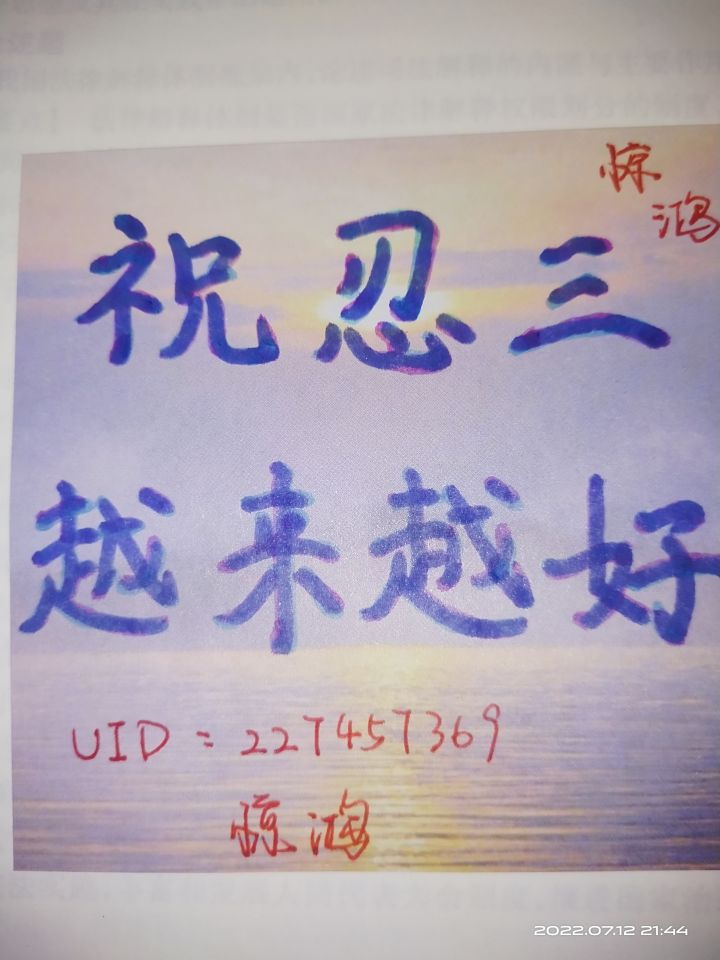 惊
鸿
祝忍三
越来越好
UID = 227457369
惊鸿
2022.07.12 21:44